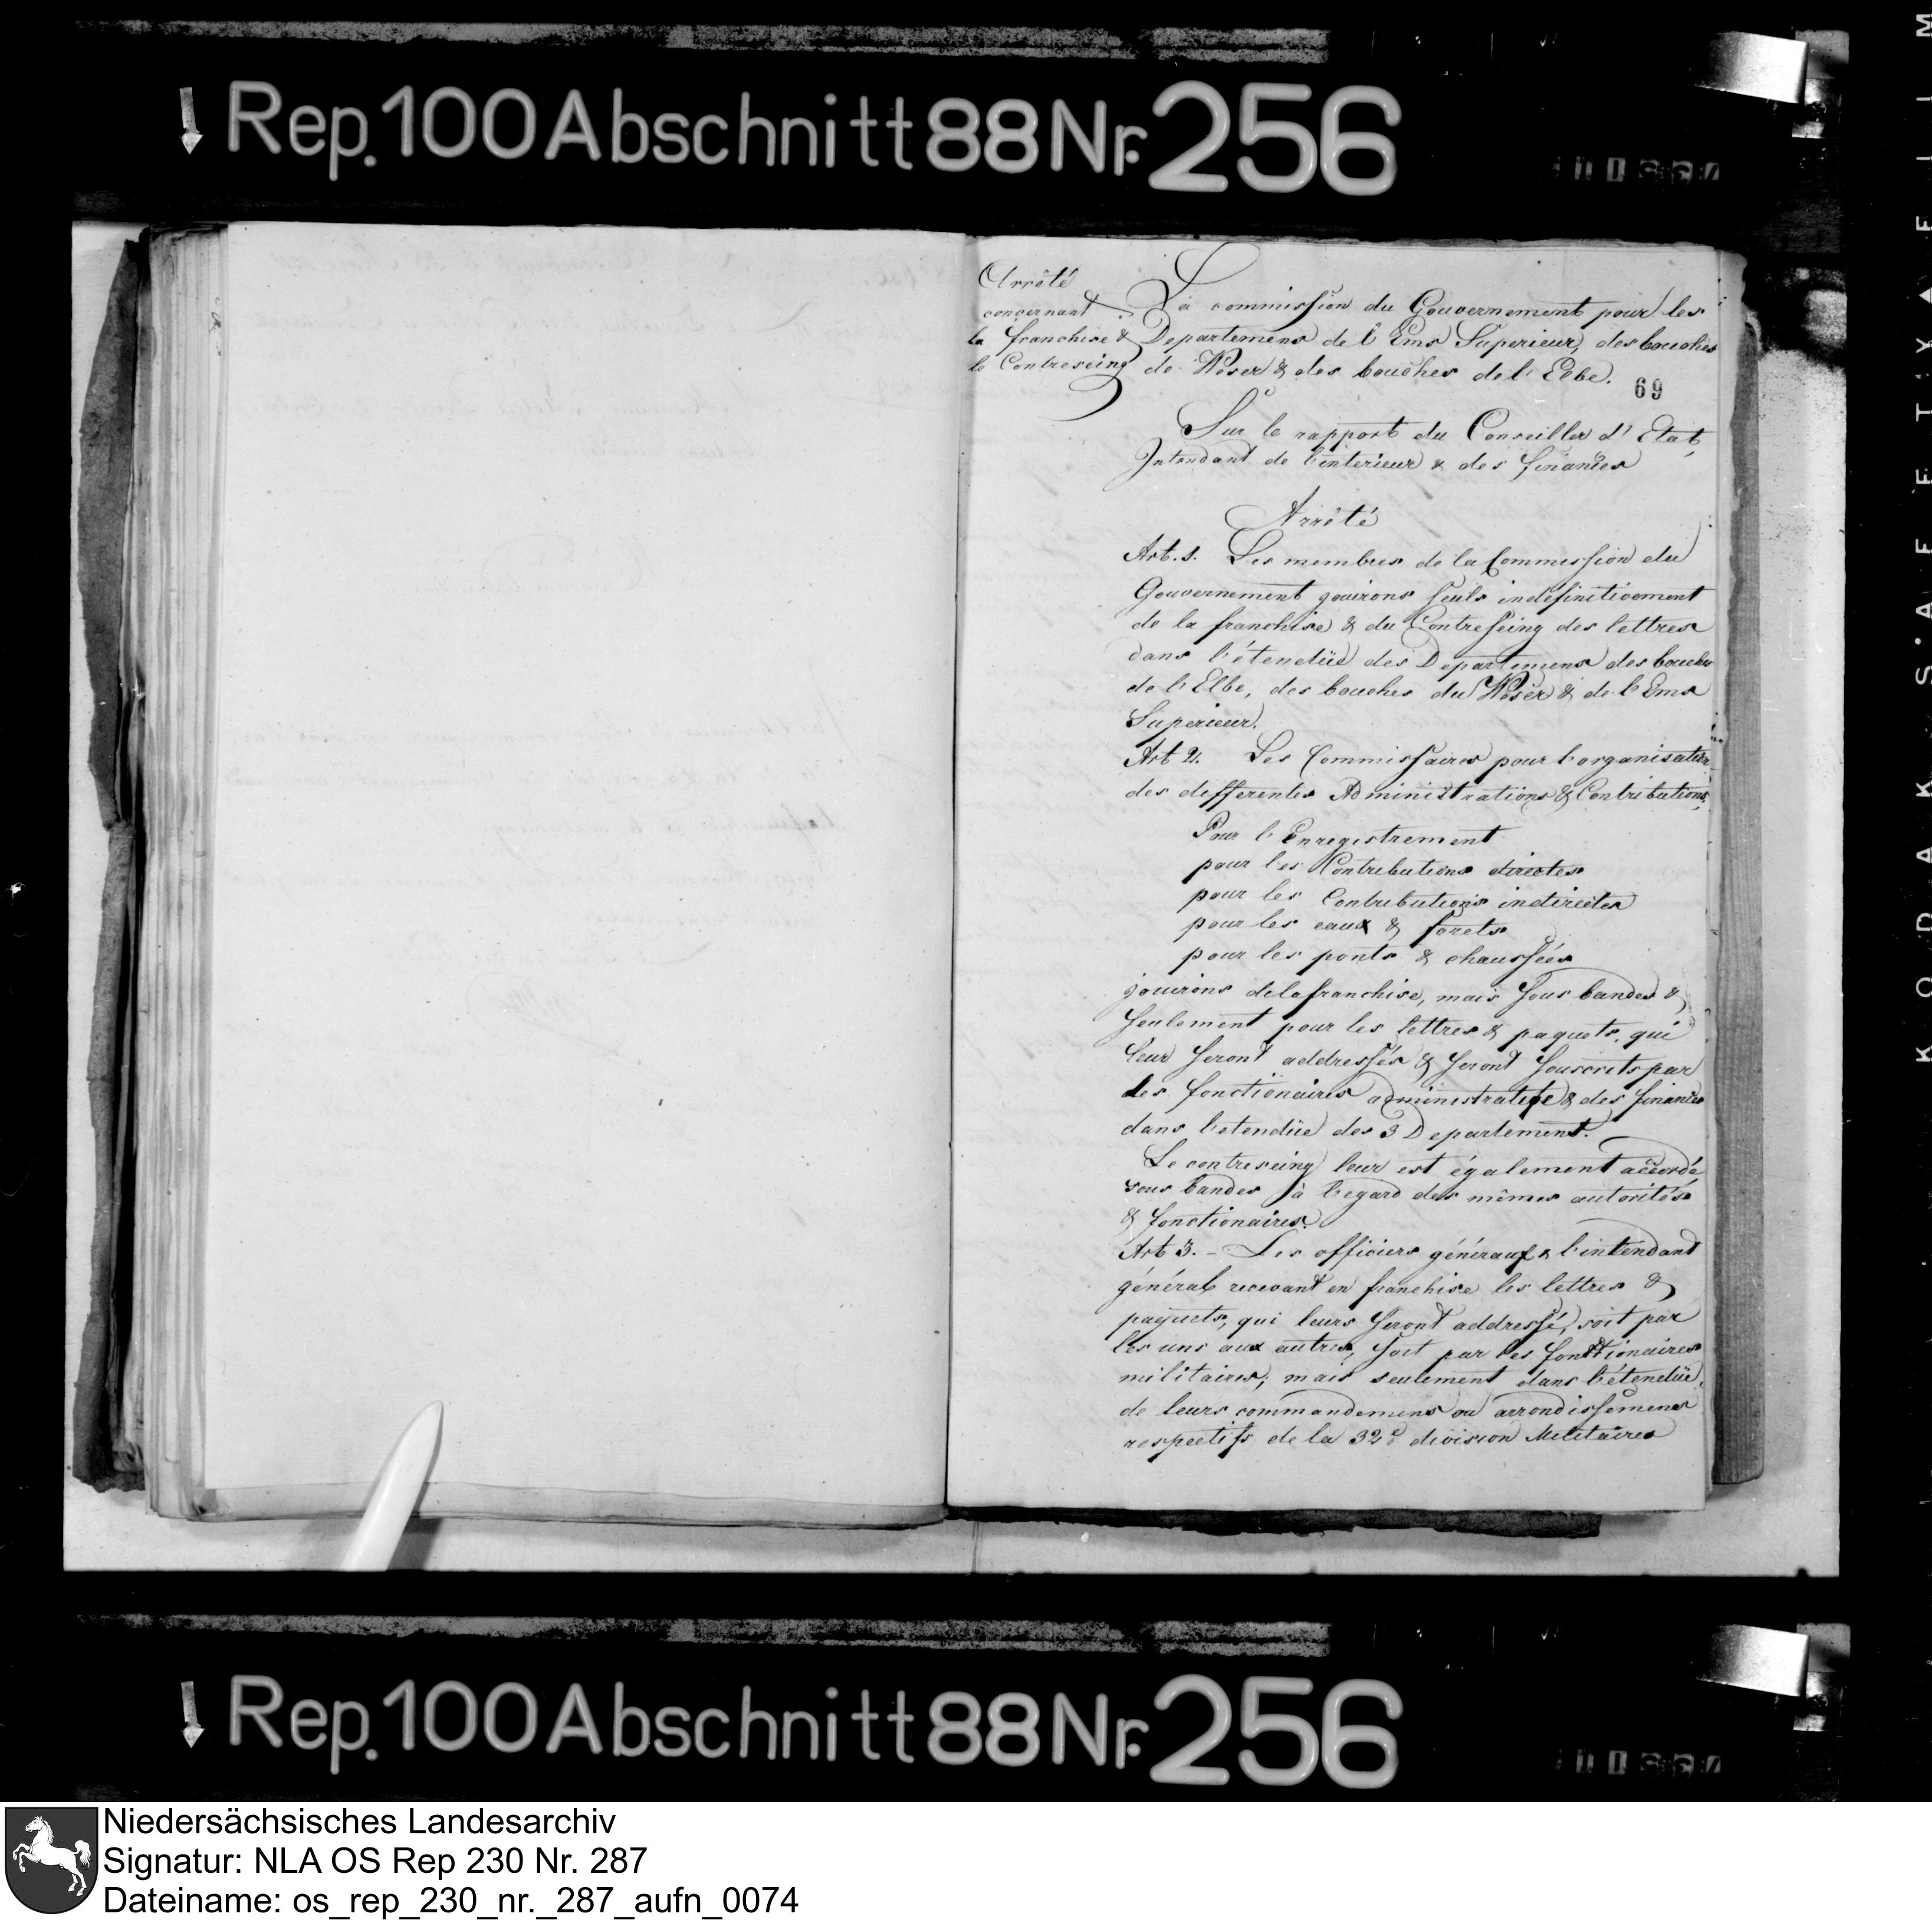 Rep. 100 Abschnitt 88 Nr. 256
Arrêté
concernant
la franchise &
le Contreseing
La commission du Gouvernement pour les
Departemens de l'Ems Superieur, des bouches
de Weser & des bouches de l'Elbe.
69
Sur le rapport du Conseiller d'Etat,
Intendant de l'interieur & des finances
Arrêté
Art. 1. Les membres de la Commission du
Gouvernement jouirons seuls indefinitivement
de la franchise & du Contreseing des lettres
dans l'étendüe des Departemens des bouches
de l'Elbe, des bouches du Weser & de l'Ems
Superieur.
Art 2. Les Commissaires pour l'organisation
des differentes Administrations & Contributions,
Pour l'Enregistrement
pour les Contributions directes
pour les Contributions indirectes
pour les eaux & forets
pour les ponts & chaussées
jouirons de la franchise, mais sous bandes &
seulement pour les lettres & paquets, qui
leur seront addressés & seront souscrits par
les fonctionaires administratifs & des finances
dans l'etendüe des 3 Departement.
Le contreseing leur est également accordé
sous bandes à l'egard des mêmes autorités
& fonctionaires.
Art 3. - Les officiers généraux & l'intendant
général recevant en franchise les lettres &
paquets, qui leurs seront addressé, soit par
les uns aux autres, soit par les fonctionaires
militaires; mais seulement dans l'étendüe
de leurs commandemens ou arrondissemens
respectifs de la 32e division Militaires
Rep. 100 Abschnitt 88 Nr. 256
Niedersächsisches Landesarchiv
Signatur: NLA OS Rep 230 Nr. 287
Dateiname: os_rep_230_nr._287_aufn_0074